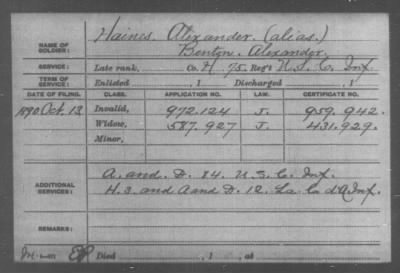 Haines, Alexander (alias)
NAME OF SOLDIER: Benton, Alexander.
SERVICE: Late rank, Co. H, 75 Reg't U.S.C. Inf.
TERM OF SERVICE: Enlisted , 1 Discharged , 1
DATE OF FILING. CLASS. APPLICATION NO. LAW. CERTIFICATE NO.
1890 Oct. 13 Invalid, 972.124 J. 959.942.
Widow, 587.927 J. 431.929.
Minor,
ADDITIONAL SERVICES: A. and D. 84. U.S.C. Inf.
H. 3. and A and D. 12. La. C. d'A Inf.
REMARKS:
Died , 1 , at